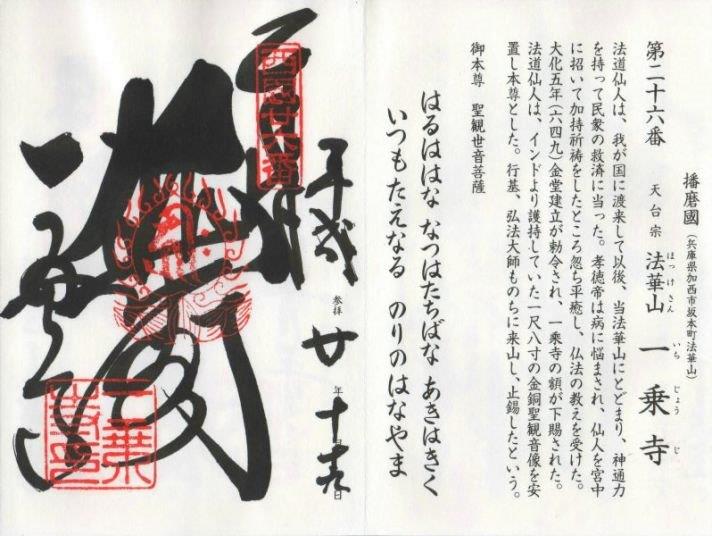 播磨國（兵庫県加西市坂本町法華山）
第二十六番 天台宗 法華山 一乗寺
ほっけさん いちじょうじ
法道仙人は、我が国に渡来して以後、当法華山にとどまり、神通力
を持って民衆の救済に当った。孝徳帝は病に悩まされ、仙人を宮中
に招いて加持祈祷をしたところ忽ち平癒し、仏法の教えを受けた。
大化五年（六四九）金堂建立が勅令され、一乗寺の額が下賜された。
法道仙人は、インドより護持していた一尺八寸の金銅聖観音像を安
置し本尊とした。行基、弘法大師ものちに来山し、止錫したという。
御本尊 聖観世音菩薩
はるははな なつはたちばな あきはきく
いつもたえなる のりのはなやま
平成 参拝 廿年
西国廿六番
一乗寺